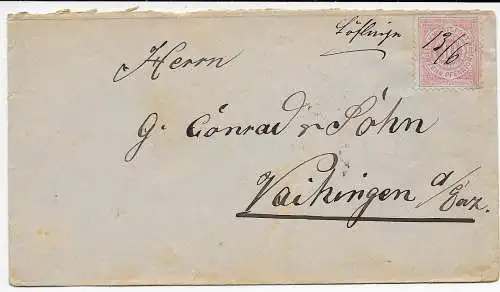 Löflingen
13/6
Herrn
G. Conrad & Sohn
Vaihingen a/Enz.